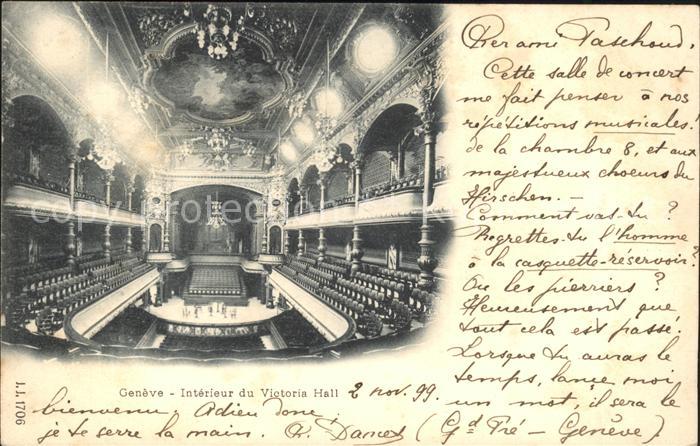 Cher ami Paschoud,
Cette salle de concert
me fait penser à nos
répétitions musicales!
de la chambre 8, et aux
majestueux choeurs du
Hirschen. —
Comment vas-tu ?
Regrettes-tu l'homme
à la casquette-réservoir?
Ou les pierriers ?
Heureusement que
tout cela est passé.
Lorsque tu auras le
temps, lance moi
un mot, il sera le
Genève - Intérieur du Victoria Hall 2 nov. 99.
bienvenu. Adieu donc,
je te serre la main. (Gd Pré - Genève)
J.J. 1706
copyright
PROTECTED